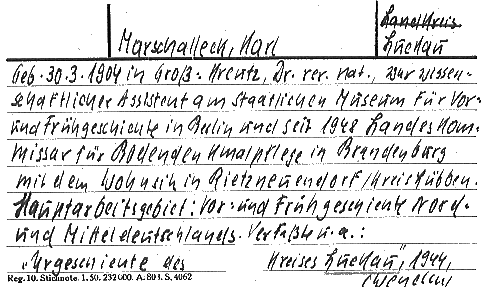 Landkreis
Marschalleck, Karl
Luckau
Geb. 30.3.1904 in Groß-Kreutz, Dr. rer. nat., war wissen-
schaftlicher Assistent am Staatlichen Museum für Vor-
und Frühgeschichte in Berlin und seit 1948 Landeskom-
missar für Bodendenkmalpflege in Brandenburg
mit dem Wohnsitz in Rietzneuendorf/Kreis Lübben.
Hauptarbeitsgebiet: Vor- und Frühgeschichte Nord-
und Mitteldeutschlands. Verfaßt u. a.:
"Urgeschichte des Kreises Luckau", 1944,
Reg. 10. Stichnote. 1. 50. 232 000. A. 803. S. 4062